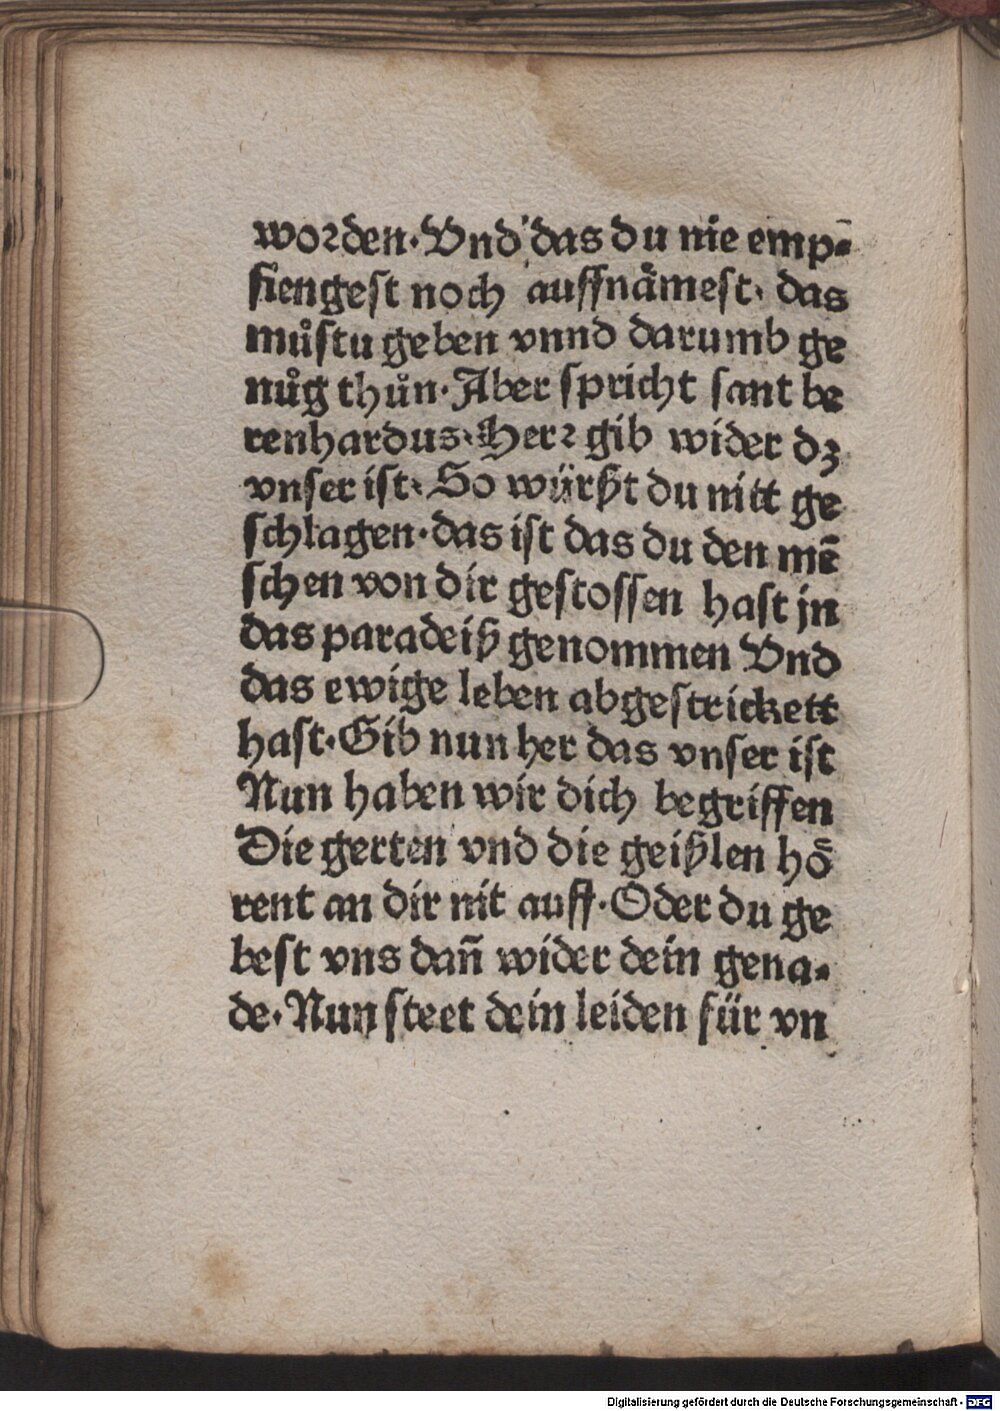 worden·Vnd das du nie emp⸗
fiengest noch auffnämest· das
můstu geben vnnd darumb ge
nůg thůn·Aber spricht sant be
renhardus·Herr gib wider dz
vnser ist·So würßt du nitt ge
schlagen·das ist das du den mē
schen von dir gestossen hast jn
das paradeiß genommen Vnd
das ewige leben abgestrickett
hast·Gib nun her das vnser ist
Nun haben wir dich begriffen
Die gerten vnd die geißlen hö
rent an dir nit auff·Oder du ge
best vns dañ wider dein gena⸗
de·Nun steet dein leiden für vn
Digitalisierung gefördert durch die Deutsche Forschungsgemeinschaft - DFG